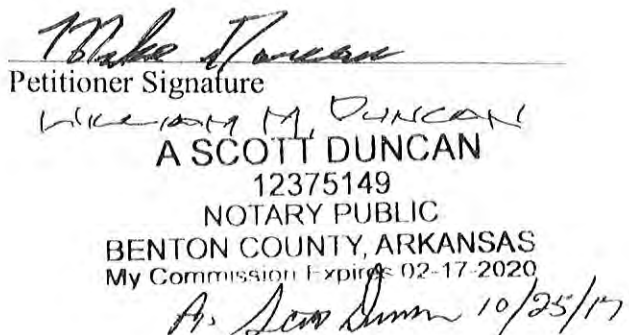 Mike Duncan
Petitioner Signature
WILLIAM M. DUNCAN
A SCOTT DUNCAN
12375149
NOTARY PUBLIC
BENTON COUNTY, ARKANSAS
My Commission Expires 02-17-2020
A. Scott Duncan 10/25/17